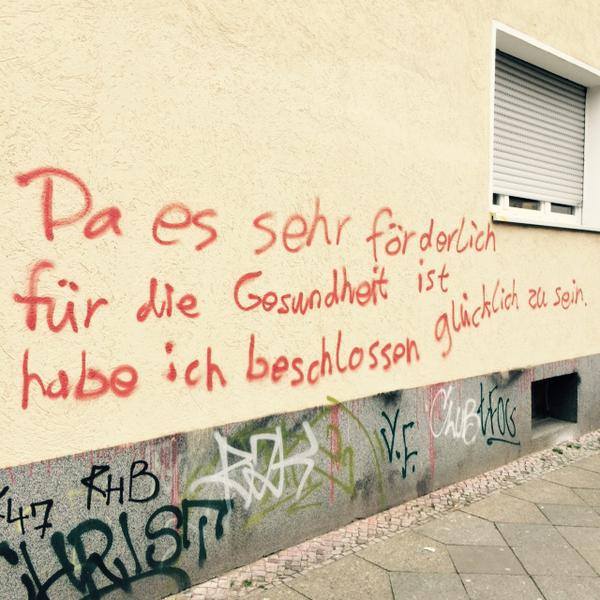 Da es sehr förderlich
für die Gesundheit ist
habe ich beschlossen glücklich zu sein.
CLUB
V.F.
RHB
47
CHRIST